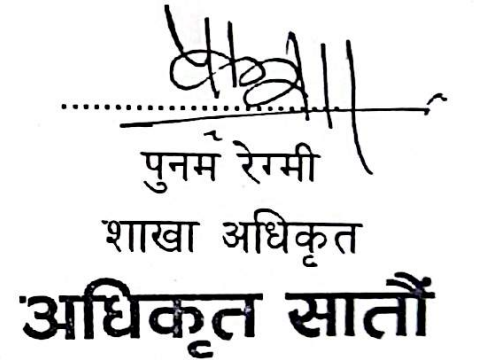 पुनम रेग्मी
शाखा अधिकृत
अधिकृत सातौं